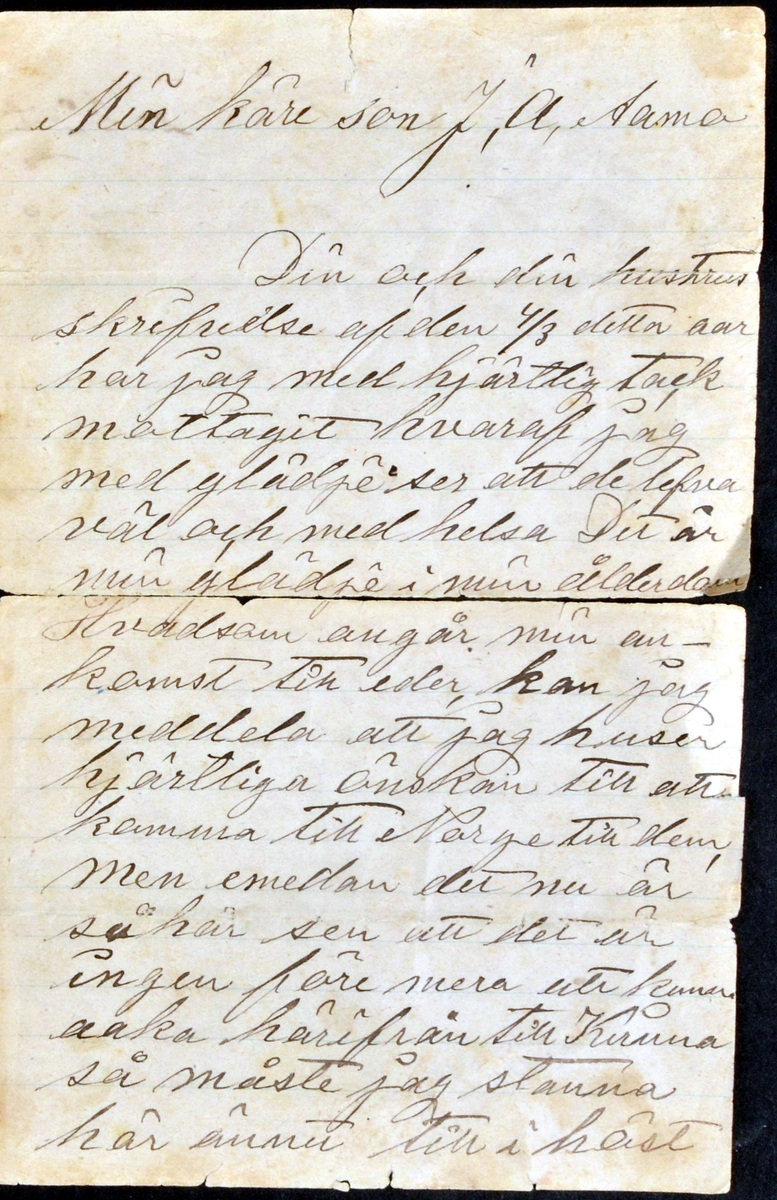 Min käre son J, A, Aamo
Din och din hustrus
skrifvelse af den 4/3 detta aar
har jag med hjärtlig tack
mottagit hvaraf jag
med glädje ser att de lefva
väl och med helsa Det är
min glädje i min ålderdom
Hvadsom angår min an-
komst till eder, kan jag
meddela att jag huser
hjärtliga önskan till att
komma till Norge till dem,
men emedan det nu är
såhär sen att det är
ingen före mera att kunna
aaka härifrån till Kiruna
så måste jag stanna
här ännu till i höst